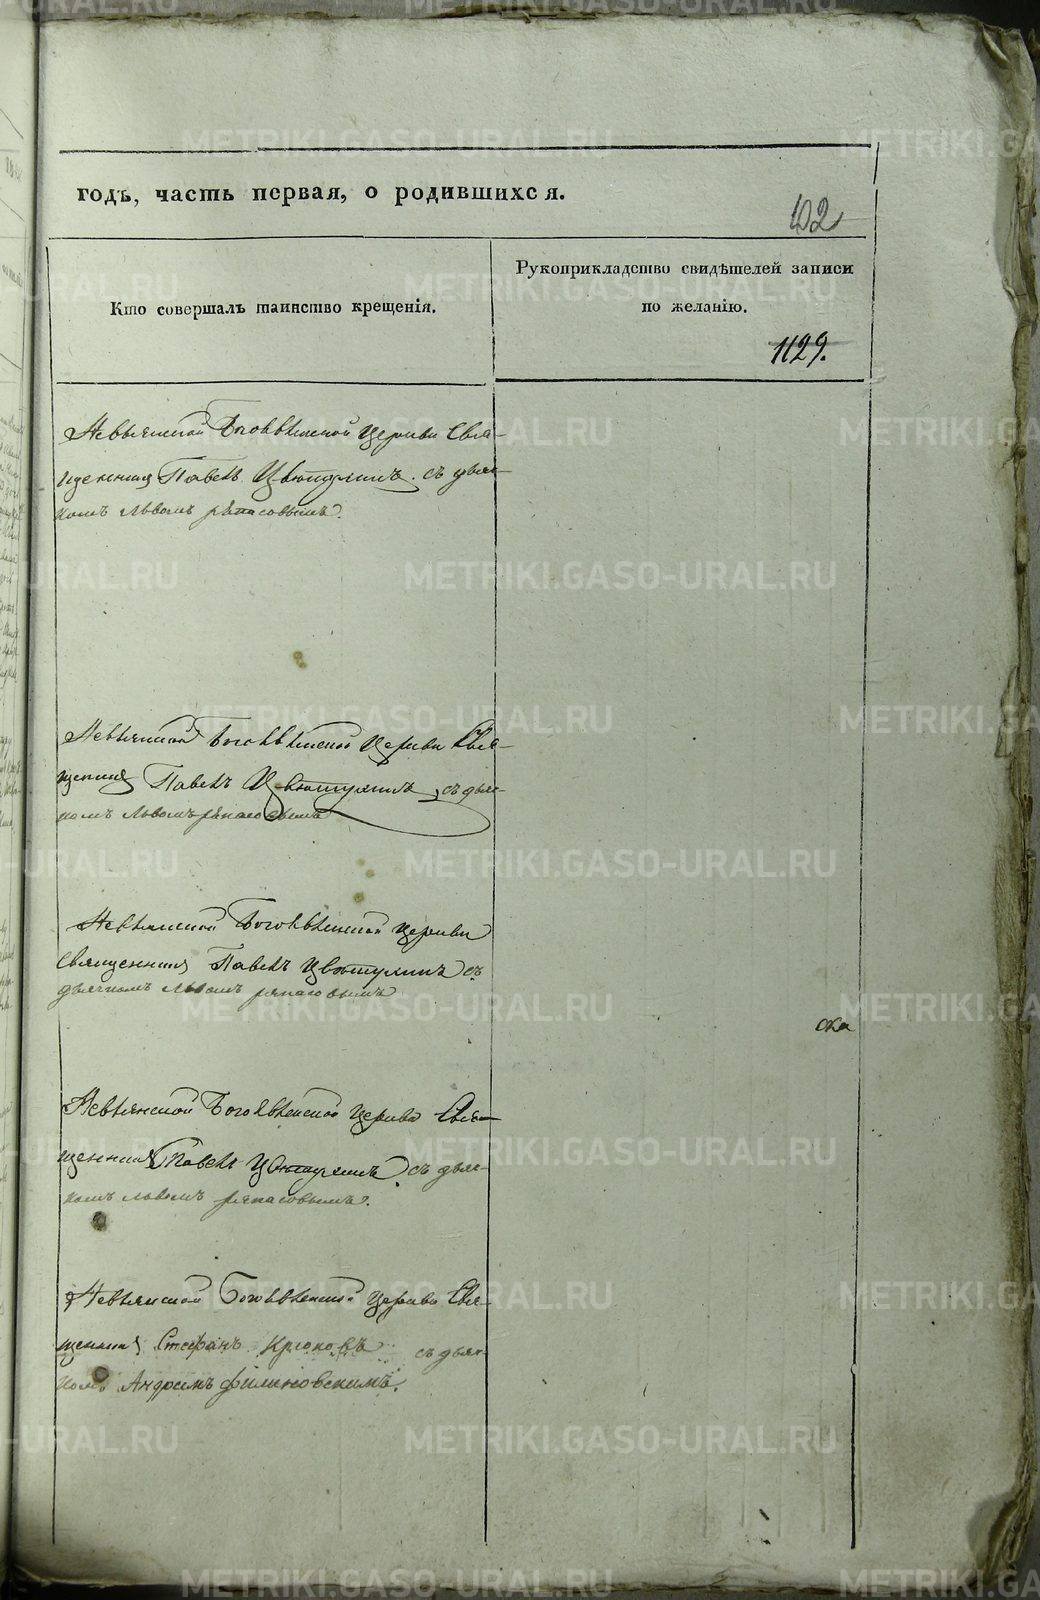 годъ, часть первая, о родившихся.
102
Кто совершалъ таинство крещенія.
Рукоприкладство свидѣтелей записи
по желанію.
1129.
Невьянской Богоявленской Церкви Свя-
щенникъ Павелъ с дьяч-
комъ Львомъ
Невьянской Богоявленской Церкви Свя-
щенникъ Павелъ съ дьяч-
комъ Львомъ
Невьянской Богоявленской Церкви
Священникъ Павелъ съ
дьячкомъ Львомъ
ска
Невьянской Богоявленской Церкви Свя-
щенникъ Павелъ съ дьяч-
комъ Львомъ
Невьянской Богоявленской Церкви Свя-
щенникъ Стефанъ Крюковъ съ дьяч-
комъ Андреемъ Филиновскимъ.
METRIKI.GASO-URAL.RU